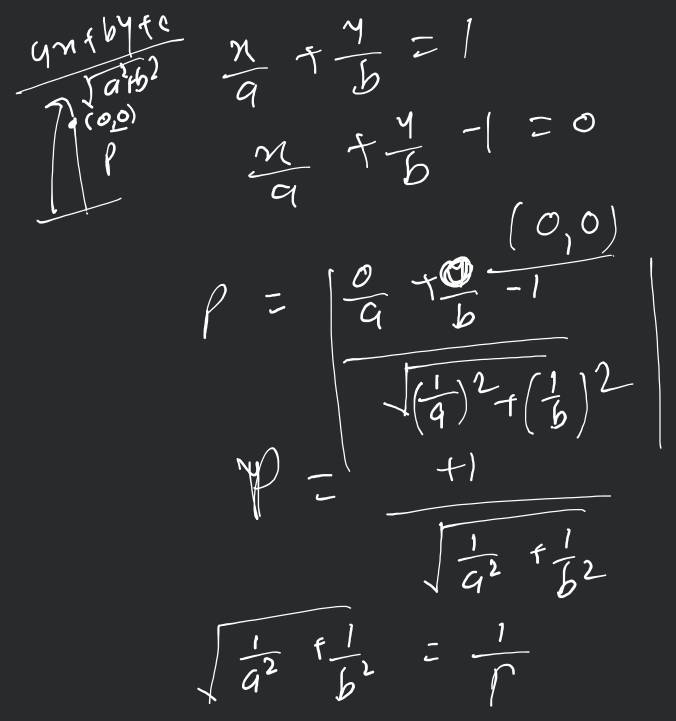 ax+by+c / √(a²+b²)
(0,0)
P
x/a + y/b = 1
x/a + y/b -1 = 0
(0,0)
P = | (0/a + 0/b -1) / √((1/a)²+(1/b)²) |
P = +1 / √(1/a² + 1/b²)
√(1/a² + 1/b²) = 1/P